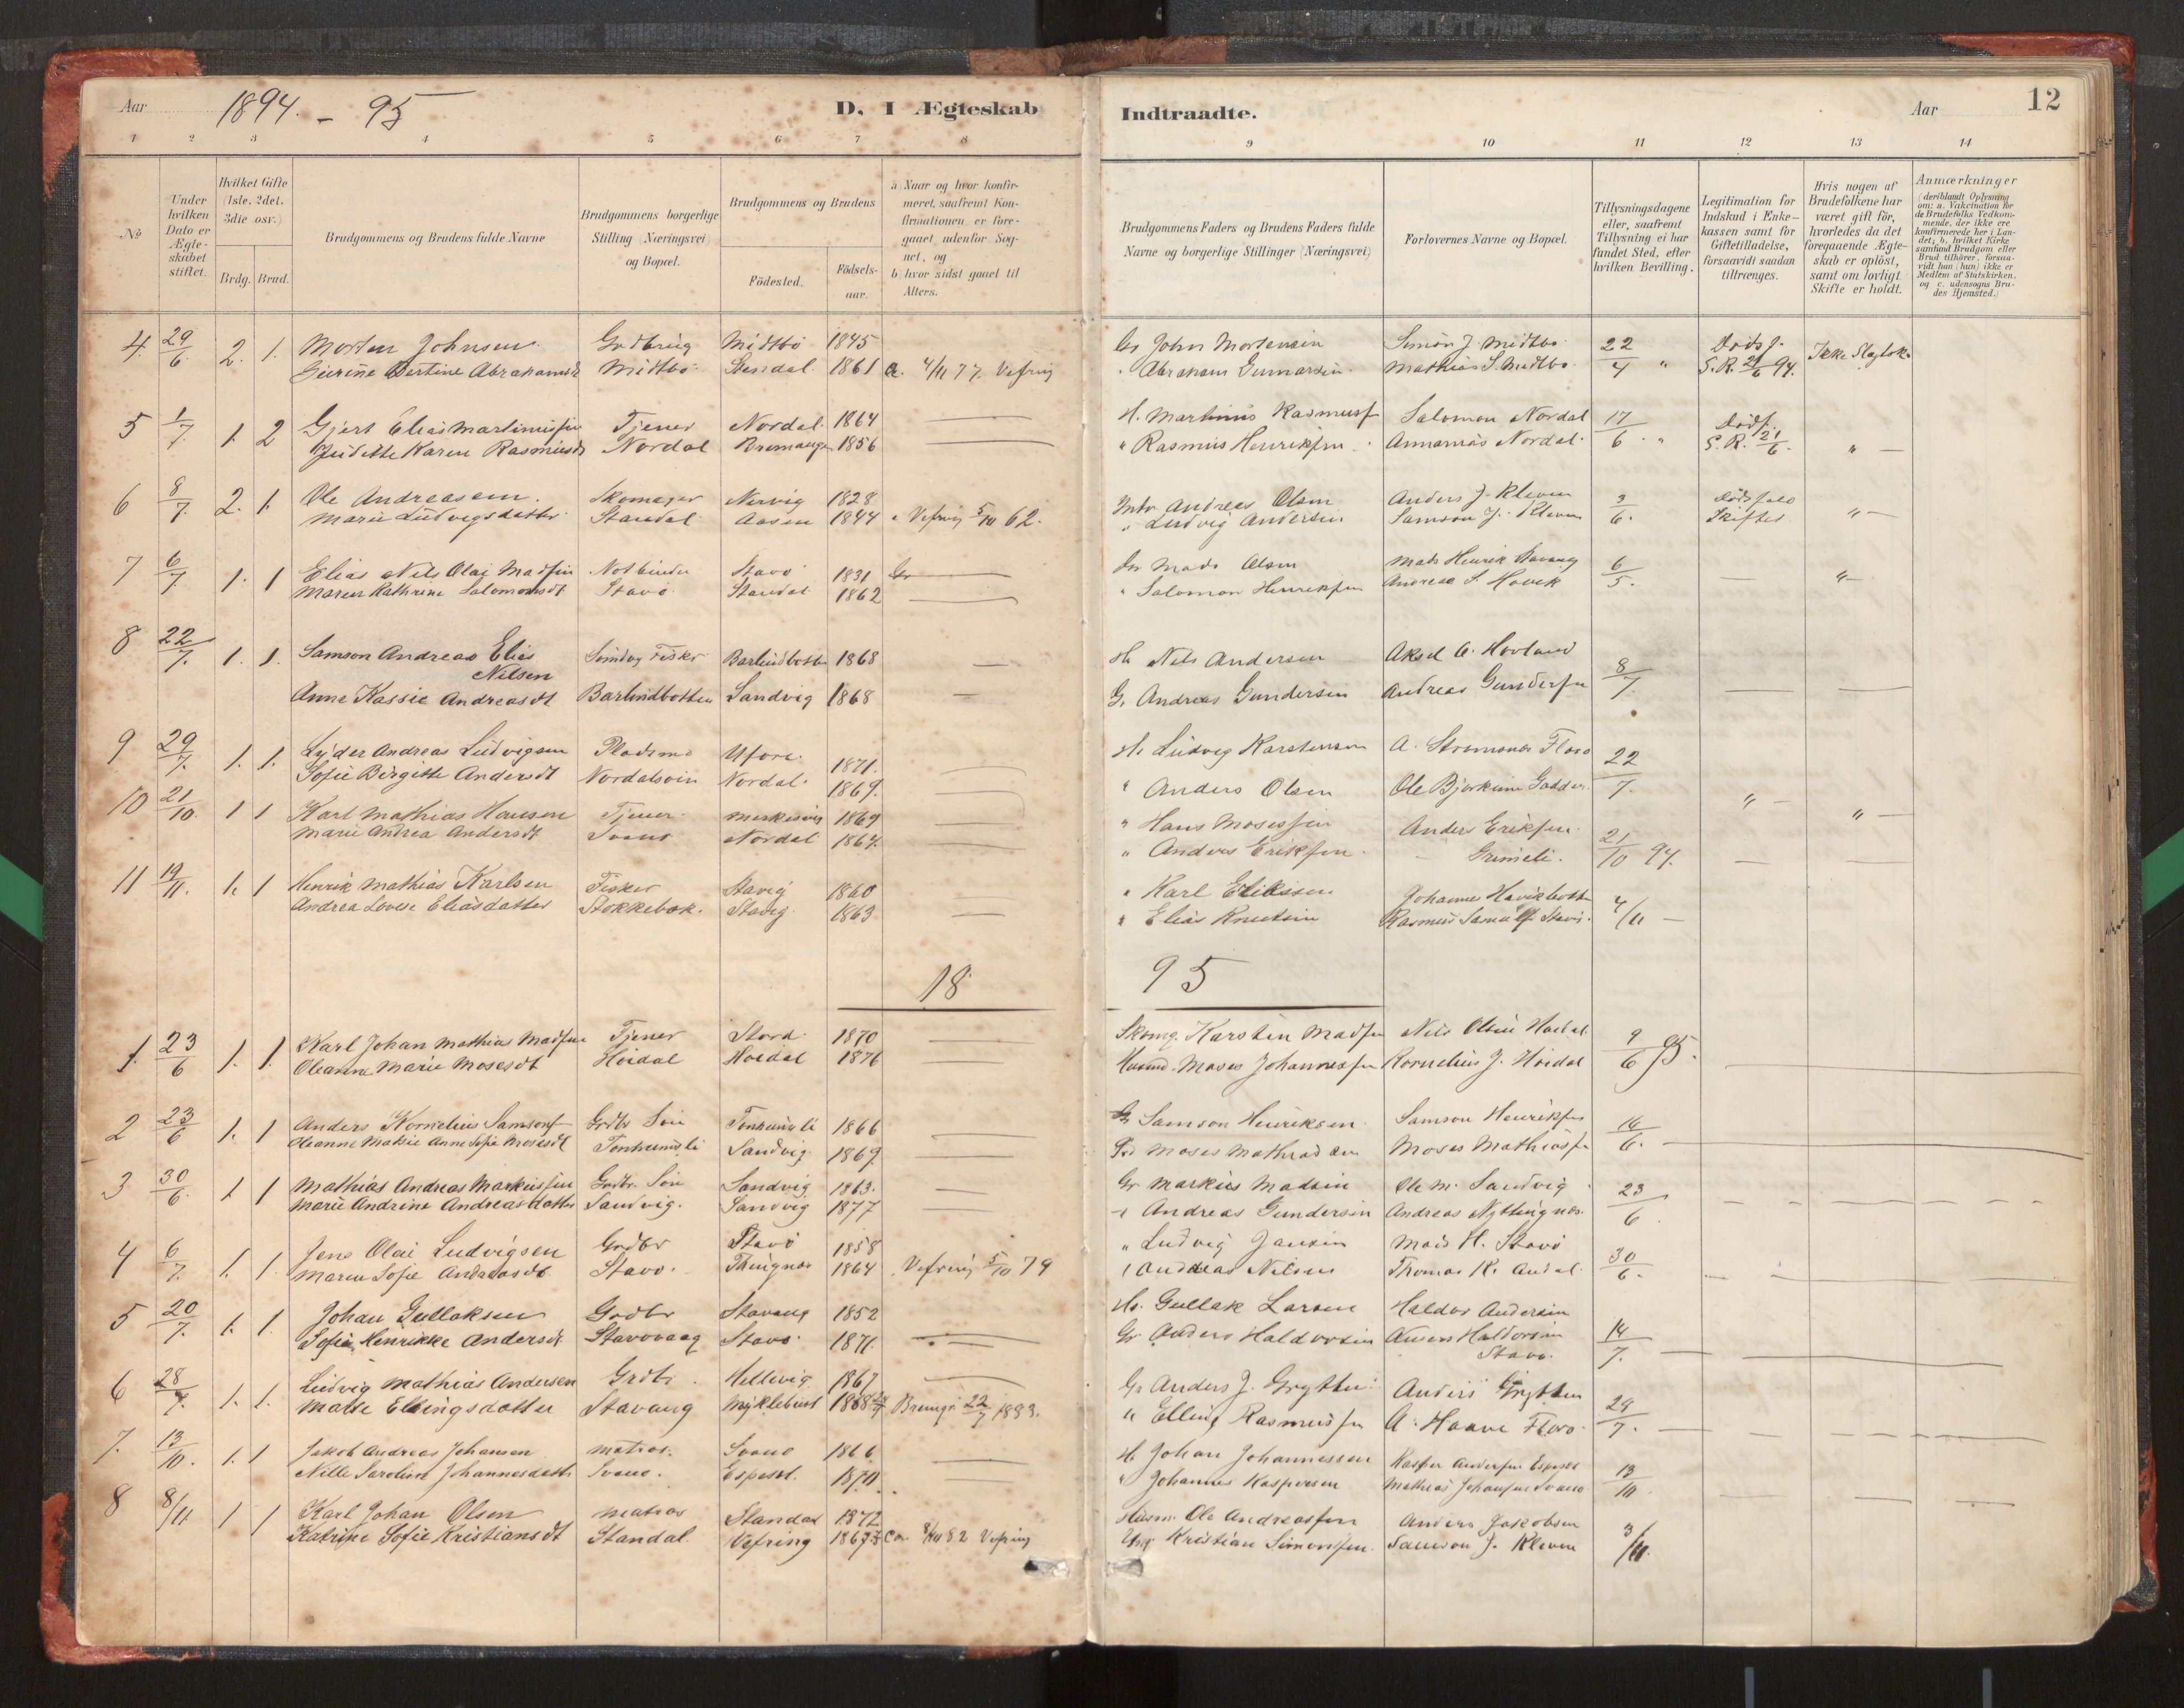 Aar 1894. - 95 D. I Ægteskab
Indtraadte. Aar 12
1 2 3 4 5 6 7 8
9 10 11 12 13 14
No
Under hvilken Dato er Ægteskabet stiftet.
Hvilket Gifte (1ste, 2det, 3die osv.)
Brdg. Brud.
Brudgommens og Brudens fulde Navne
Brudgommens borgerlige Stilling (Næringsvei) og Bopæl.
Brudgommens og Brudens
Födested. Födsels-aar.
a) Naar og hvor konfirmeret, saafremt Konfirmationen er foregaaet udenfor Sognet, og
b) hvor sidst gaaet til Alters.
Brudgommens Faders og Brudens Faders fulde Navne og borgerlige Stillinger (Næringsvei)
Forlovernes Navne og Bopæl.
Tillysningsdagene eller, saafremt Tillysning ei har fundet Sted, efter hvilken Bevilling.
Legitimation for Indskud i Enkekassen samt for Giftetilladelse, forsaavidt saadan tiltrænges.
Hvis nogen af Brudefolkene har været gift för, hvorledes da det foregaaende Ægteskab er oplöst, samt om lovligt Skifte er holdt.
Anmærkninger (deriblandt Oplysning om: a. Vakcination for de Brudefolks Vedkommende, der ikke ere konfirmerede her i Landet; b. hvilket Kirkesamfund Brudgom eller Brud tilhörer, forsaavidt han (hun) ikke er Medlem af Statskirken, og c. udensogns Brudes Hjemsted.)
4. 29/6 2. 1. Morten Johnsen Midtbö 1845 John Mortensen Simon J. Midtbö 22/4 "
Bertine Abrahamsdt Midtbö Standal 1861 a. 4/11 77. Vefring Abraham Gunnarsen Mathias S. Midtbö S.R. 21/6 94. Ikke
5 1/7. 1. 2 Gjert Elias Martinussen Tjener Nordal 1864 H. Martinus Rasmuss Salomon Nordal 17/6 "
Karen Rasmusdt Nordal Bremanger 1856 " Rasmus Henriksen Annanias Nordal S.R. 21/6 "
6 8/7. 2. 1. Ole Andreasen Skomager Nervig 1828 Andreas Olsen Anders J. Kleven 3/6. Dödsfald
Marie Ludvigsdatter Standal Aasen 1844 Vefring 5/10 62. " Ludvig Andersen Samson J. Kleven Skiftet "
7 6/7. 1. 1 Elias Nils Olai Madsen Notbinder Stavö 1831 Mads Olsen Mads Henrik Stavang 6/5.
Maren Kathrine Salomonsdt Stavö Standal 1862 " Salomon Henriksen Andreas S. Hovik "
8 22/7. 1. 1. Samson Andreas Elias Nilsen Fisker Barlindbotten 1868 H. Nils Andersen Aksel A. Hovland 8/7.
Anne Kassie Andreasdt Barlindbotten Sandvig 1868 G. Andreas Gundersen Andreas Gundersen
9 29/7. 1. 1. Lyder Andreas Ludvigsen Pladsmd Ufore 1871. H. Ludvig Karstensen A. Strømsnes Florö 22/7.
Sofie Birgitte Andersdt Nordalsvin Nordal 1869. " Anders Olsen Ole Bjorkum
10 21/10. 1 1 Karl Mathias Hansen Tjener 1869 " Hans Mosessen Anders Eriksen 21/10 94.
Marie Andrea Andersdt Svanö Nordal 1864. " Anders Eriksen Grimeli.
11 19/11. 1. 1 Henrik Mathias Karlsen Fisker Stavig 1860 " Karl Eliassen Johannes 4/11
Andrea Lovise Eliasdatter Stokkebæk. Stavig 1863 " Elias Knutsen Rasmus Stavö.
18 95
1. 23/6 1. 1. Karl Johan Mathias Madsen Tjener Stord 1870 Skomg. Karsten Madsen Nils Olsen Höidal 9/6 95.
Oleanna Marie Mosesdt Höidal Hoidal 1876 Moses Johannessen Kornelius J. Höidal
2 23/6 1. 1 Anders Kornelius Samsons Grdbr Sön 1866 Gr. Samson Henriksen Samson Henriksen 16/6.
Oleanne Matsie Anne Sofie Mosesdt Sandvig 1869 Moses Mathiassen Moses Mathiassen
3 30/6. 1. 1 Mathias Andreas Markussen Grdbr. Sön Sandvig 1863. Gr Markus Madsen Ole M. Sandvig 23/6
Marie Andrine Andreasdatter Sandvig. Sandvig 1877 " Andreas Gundersen Andreas Nyttingnes
4 6/7. 1. 1 Jens Olai Ludvigsen Grdbr Stavö 1858 " Ludvig Jansen Mads H. Stavö 30/6.
Maren Sofie Andreasdt Stavö. Thingnes 1864 Vefring 5/10 79 " Andreas Nilsen Thomas K. Andal
5 20/7. 1. 1. Johan Gullaksen Grdbr Stavang 1852 H. Gullak Larsen Haldor Andersen 14/7.
Sofie Henrikke Andersdt Stavövaag Stavö 1871. Gr Anders Haldorsen Anders Haldorsen Stavö.
6 28/7. 1. 1. Ludvig Mathias Andersen Grdbr. Hellevig 1867 Gr Anders J. Grytten Anders Grytten 29/7.
Matte Ellingsdatter Stavang Myklebust 1868 Bremgr 22/7 1883. " Elling Rasmussen A. Haave Florö
7. 13/10. 1. 1 Jakob Andreas Johansen Matros. Svanö 1866 H Johan Johannessen Kasper Andersen Espeset 13/10
Nille Saroline Johannesdatt Svanö. Espeset. 1870. " Johannes Kaspersen Mathias Johansen Svanö
8 8/11 1 1 Karl Johan Olsen Matros Standal 1872 Husm. Ole Andreassen Anders Jakobsen 3/11.
Katrine Sofie Kristiansdt Standal. Vefring 1867 82 Vefring Kristian Simonsen Samson J. Kleven